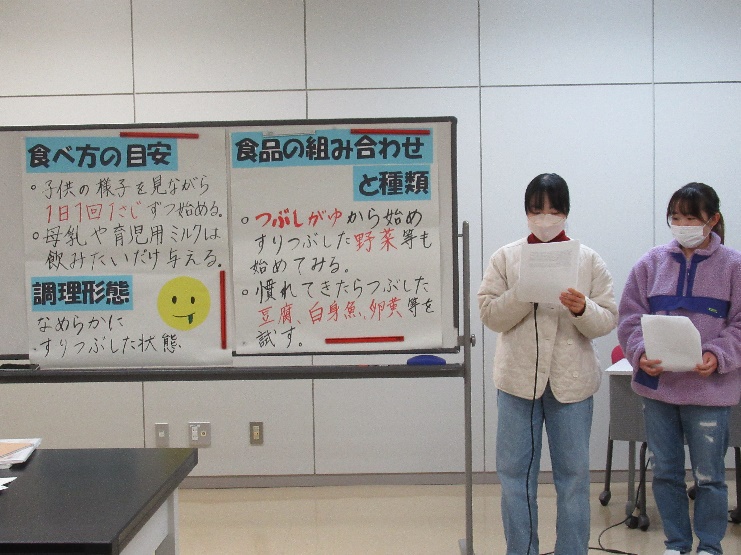 食べ方の目安
○子供の様子を見ながら
1日1回1さじずつ始める。
○母乳や育児用ミルクは
飲みたいだけ与える。
調理形態
なめらかに
すりつぶした状態
食品の組み合わせ
と種類
○つぶしがゆから始め
すりつぶした野菜等も
始めてみる。
○慣れてきたらつぶした
豆腐、白身魚、卵黄等を
試す。